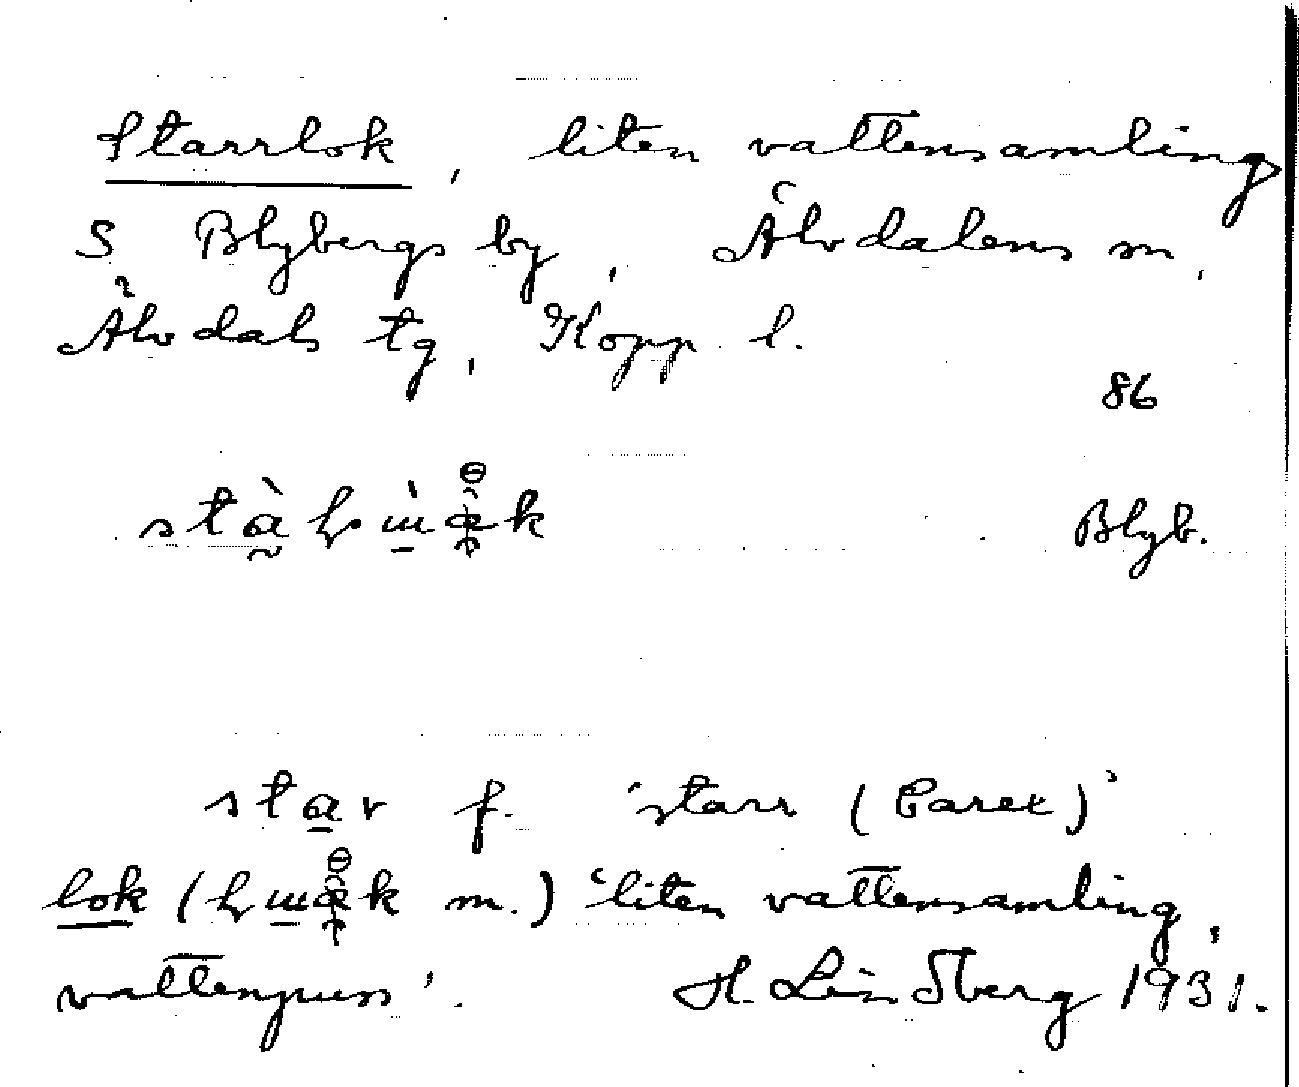 Starrlok, liten vattensamling
S Blybergs by, Älvdalens sn,
Älvdals tg, Kopp. l.
86
Blyb.
star f. 'starr (Carex)'
lok ( k m.) 'liten vattensamling,
vattenpuss'. H. Lindberg 1931.